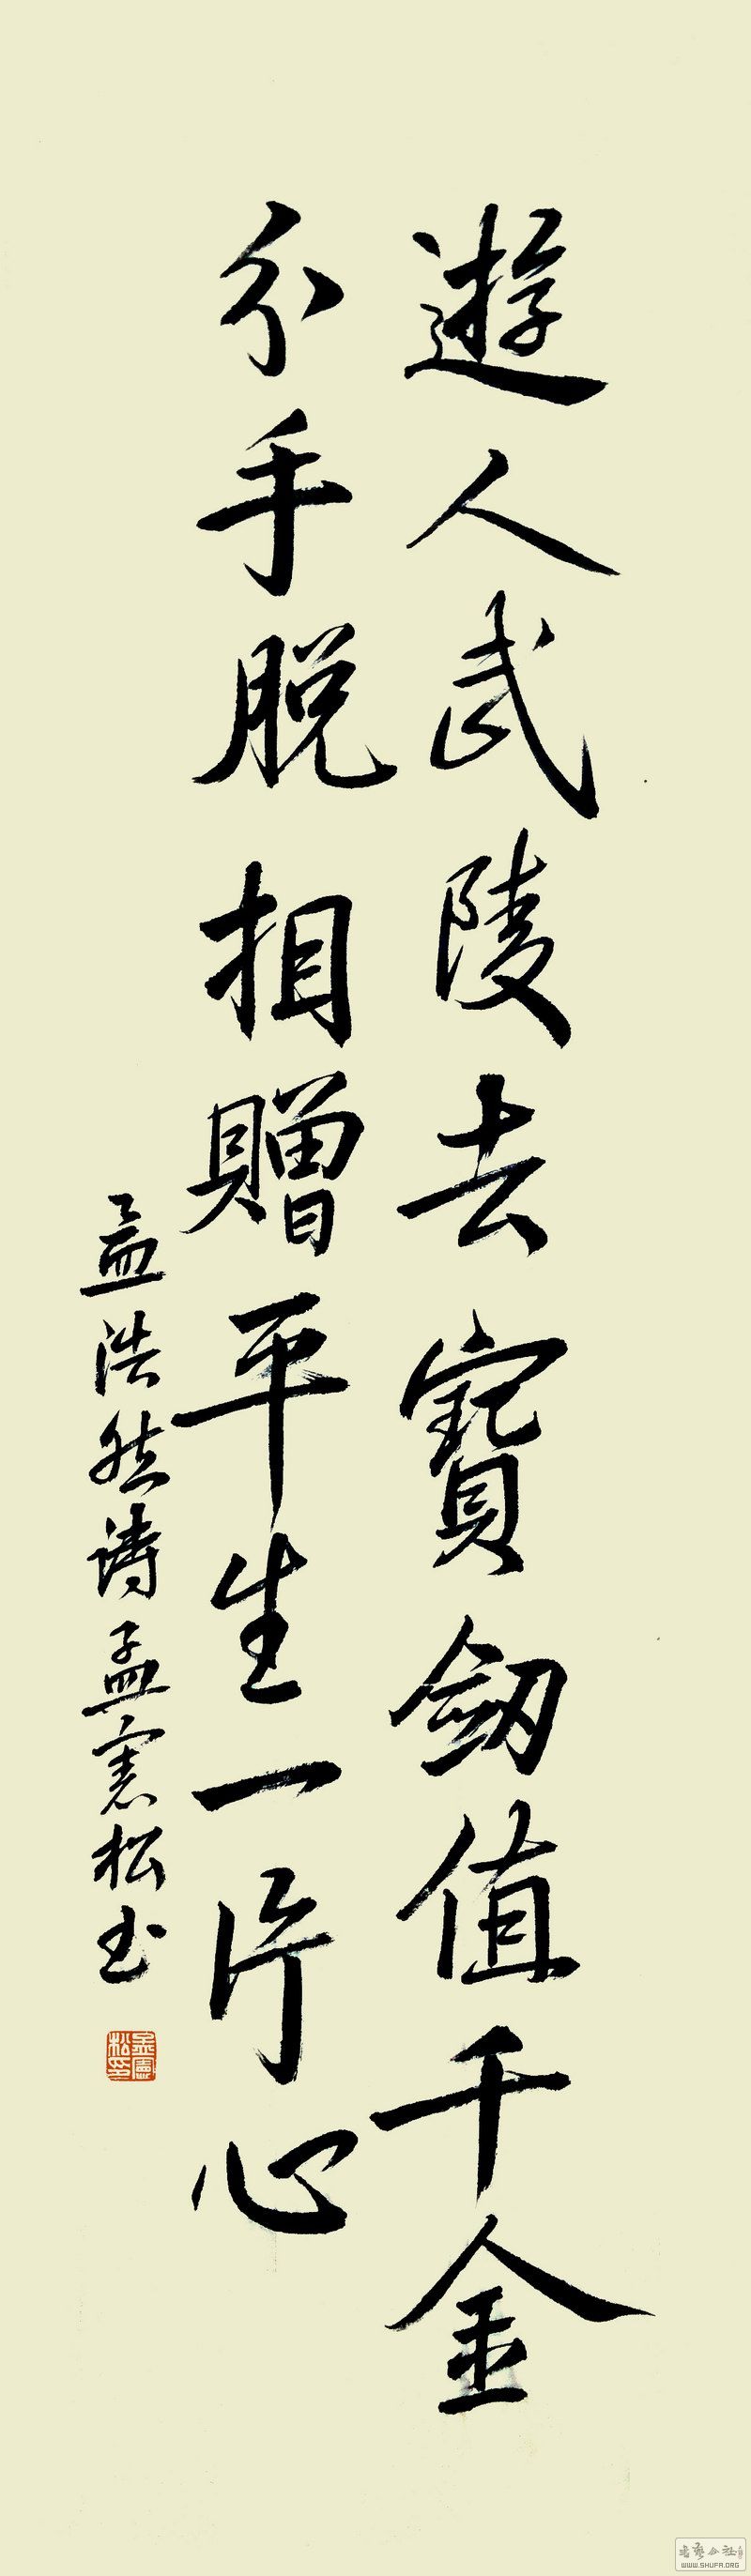 遊人武陵去寶劒值千金
分手脱相贈平生一片心
孟浩然诗孟憲松书
孟憲松印
书艺公社
WWW.SHUFA.ORG